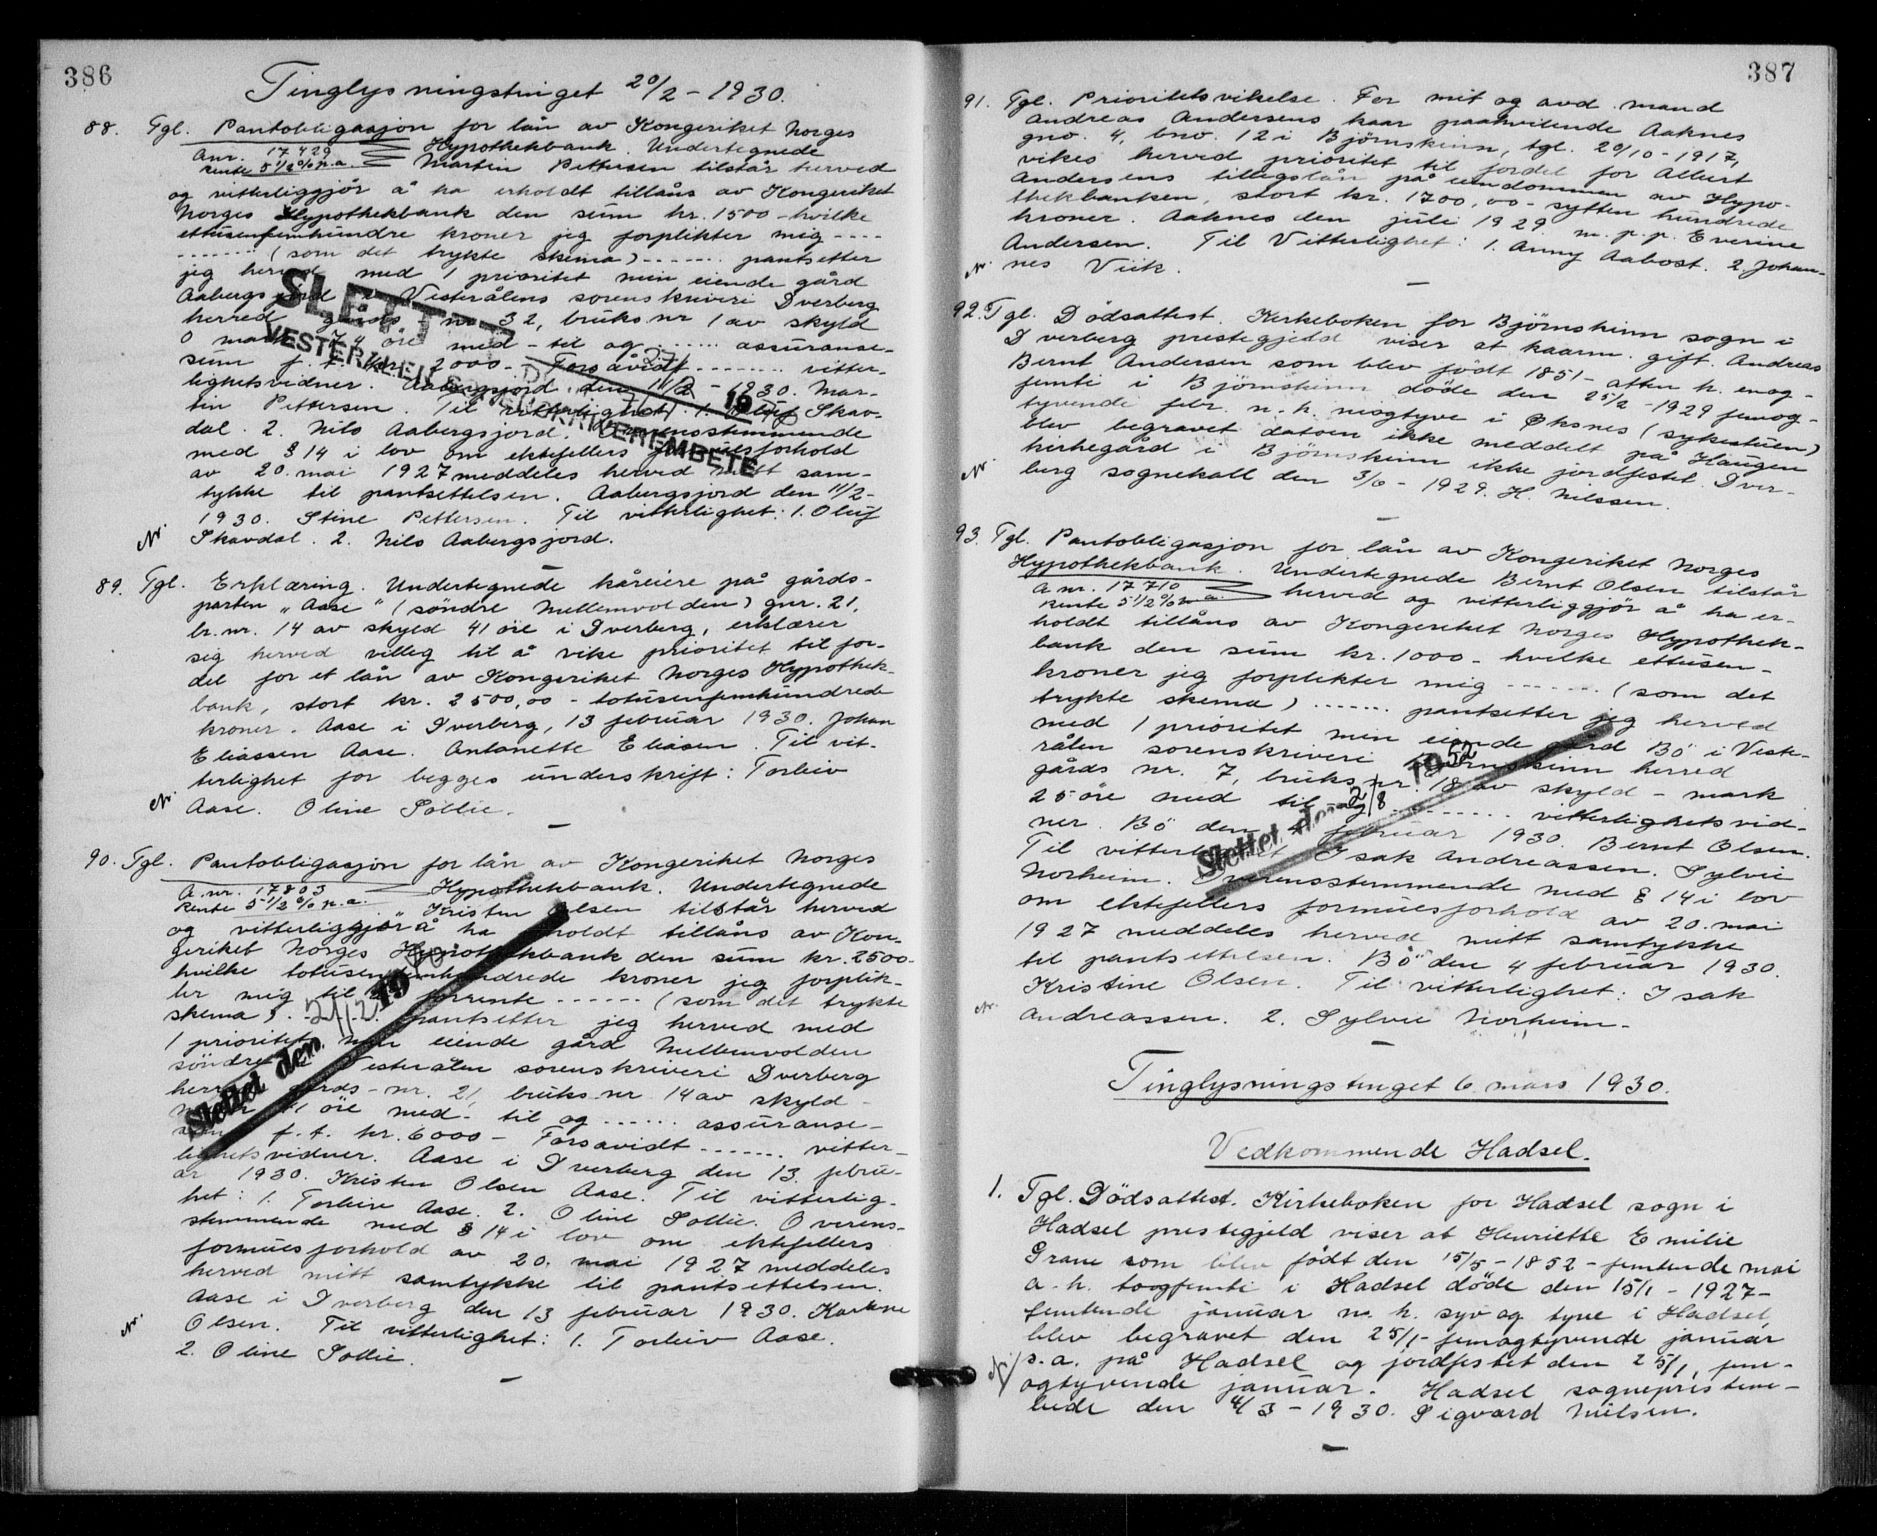 386
Tinglysningstinget 20/2 - 1930.
88. Tgl. Pantobligasjon for lån av Kongeriket Norges
Anr. 17429 Hypothekbank. Undertegnede
Rente 5 1/2 % p.a. Martin Pettersen tilstår herved
og vitterliggjör å ha erholdt tillåns av Kongeriket
Norges Hypothekbank den sum kr. 1500 - hvilke
ettusenfemhundre kroner jeg forplikter mig ----
------- (som det trykte skema) ------- pantsetter
jeg herved med 1 prioritet min eiende gård
Aabergsjord i Vesterålens sorenskriveri Dverberg
herred gårds - nr 32, bruks nr 1 av skyld
0 mark 74 öre med - til og ...... assuranse-
sum f. t. kr. 2000 - Forsåvidt ........ vitter-
lighetsvidner. Aabergsjord den 11/2 - 1930. Mar-
tin Pettersen. Til vitterlighet: 1. Oluf Skav-
dal. 2. Nils Aabergsjord. Overensstemmende
med § 14 i lov om ektefellers formuesforhold
av 20. mai 1927 meddeles herved mitt sam-
tykke til pantsettelsen. Aabergsjord den 11/2 -
1930. Stine Pettersen. Til vitterlighet: 1. Oluf
Nr. Skavdal. 2. Nils Aabergsjord.
SLETTET
27
19
VESTERÅLEN SORENSKRIVEREMBETE
89. Tgl. Erklæring. Undertegnede kåreiere på gårds-
parten "Aase" (söndre Mellemvolden) gnr. 21,
br. nr. 14 av skyld 41 öre i Dverberg, erklærer
sig herved villeg til å vike prioritet til for-
del for et lån av Kongeriket Norges Hypothek-
bank, stort kr. 2500,00 - totusenfemhundrede
kroner. Aase i Dverberg, 13 februar 1930. Johan
Eliassen Aase. Antonette Eliasen. Til vit-
terlighet for begges underskrift: Torleiv
Nr. Aase. Oline Sollie.
90. Tgl. Pantobligasjon for lån av Kongeriket Norges
A. nr. 17803 Hypothekbank. Undertegnede
Rente 5 1/2 % p.a. Kristen Olsen tilstår herved
og vitterliggjör å ha erholdt tillåns av Kon-
geriket Norges Hypothekbank den sum kr. 2500-
hvilke totusenfemhundrede kroner jeg forplik-
ter mig til å forrente ------ (som det trykte
skema) ...... pantsetter jeg herved med
1 prioritet min eiende gård Mellemvolden
söndre i Vesterålen sorenskriveri Dverberg
herred gårds - nr. 21, bruks nr 14 av skyld -
mark 41 öre med - til og ...... assuranse-
sum f. t. kr. 6000 - Forsavidt ....... vitter-
lighetsvidner. Aase i Dverberg den 13. febru-
ar 1930. Kristen Olsen Aase. Til vitterlig-
het: 1. Torleiv Aase. 2. Oline Sollie. Overens-
stemmende med § 14 i lov om ektefellers
formuesforhold av 20. mai 1927 meddeles
herved mitt samtykke til pantsettelsen.
Aase i Dverberg den 13 februar 1930.
Nr. Olsen. Til vitterlighet: 1. Torleiv Aase.
2. Oline Sollie.
Slettet den 19
387
91. Tgl. Prioritetsvikelse. For mit og avd. mand
Andreas Andersens kaar paahvilende Aaknes
gno. 4, bno. 12 i Björnskinn, tgl. 20/10 - 1917,
vikes herved prioritet til fordel for Albert
Andersens tillegslån på eiendommen av Hypo-
thekbanken, stort kr. 1700,00 - sytten hundrede
kroner. Aaknes den juli 1929 m. p. p. Everine
Andersen. Til Vitterlighet: 1. Anny Aabost. 2. Johan-
Nr. nes Viik.
92. Tgl. Dödsattest. Kirkeboken for Björnskinn sogn i
Dverberg prestegjeld viser at kaarm. gift. Andreas
Bernt Andersen som blev födt 1851 - atten h. enog-
femti i Björnskinn döde den 25/2 - 1929 femog-
tyvende febr. n. h. niogtyve i Øksnes (sykestuen)
blev begravet datoen ikke meddelt på Haugen
kirkegård i Björnskinn ikke jordfestet. Dver-
Nr. berg sognekall den 3/6 - 1929. H. Nilssen.
93. Tgl. Pantobligasjon for lån av Kongeriket Norges
Hypothekbank. Undertegnede Bernt Olsen tilstår
A nr. 17710 herved og vitterliggjör å ha er-
Rente 5 1/2 % p. a.
holdt tillåns av Kongeriket Norges Hypothek-
bank den sum kr. 1000 - hvilke ettusen-
kroner jeg forplikter mig ------- (som det
trykte skema) ....... pantsetter jeg herved
med 1 prioritet min eiende gård Bö i Veste-
rålen sorenskriveri Björnskinn herred
gårds nr. 7, bruks nr. 18 av skyld - mark
25 öre med til og .......... vitterlighetsvid-
ner. Bö den 4 februar 1930. Bernt Olsen.
Til vitterlighet Isak Andreassen. Sylvie
Norheim. Overensstemmende med § 14 i lov
om ektefellers formuesforhold av 20. mai
1927 meddeles herved mitt samtykke
til pantsettelsen. Bö den 4 februar 1930.
Kristine Olsen. Til vitterlighet: Isak
Nr. Andreassen. 2. Sylvie Norheim.
Slettet den 2/8 1952
Tinglysningstinget 6. mars 1930.
Vedkommende Hadsel.
1. Tgl. Dödsattest. Kirkeboken for Hadsel sogn i
Hadsel prestegjeld viser at Henriette Emilie
Grane som blev födt den 15/5 - 1852 - femtende mai
a. h. toogfemti i Hadsel döde den 15/1 - 1927 -
femtende januar n. h. syv og tyve i Hadsel,
blev begravet den 25/1 - femogtyvende januar
s. a. på Hadsel og jordfestet den 25/1, fem-
ogtyvende januar. Hadsel sogneprestem-
bede den 4/3 - 1930. Sigvard Nilsen.